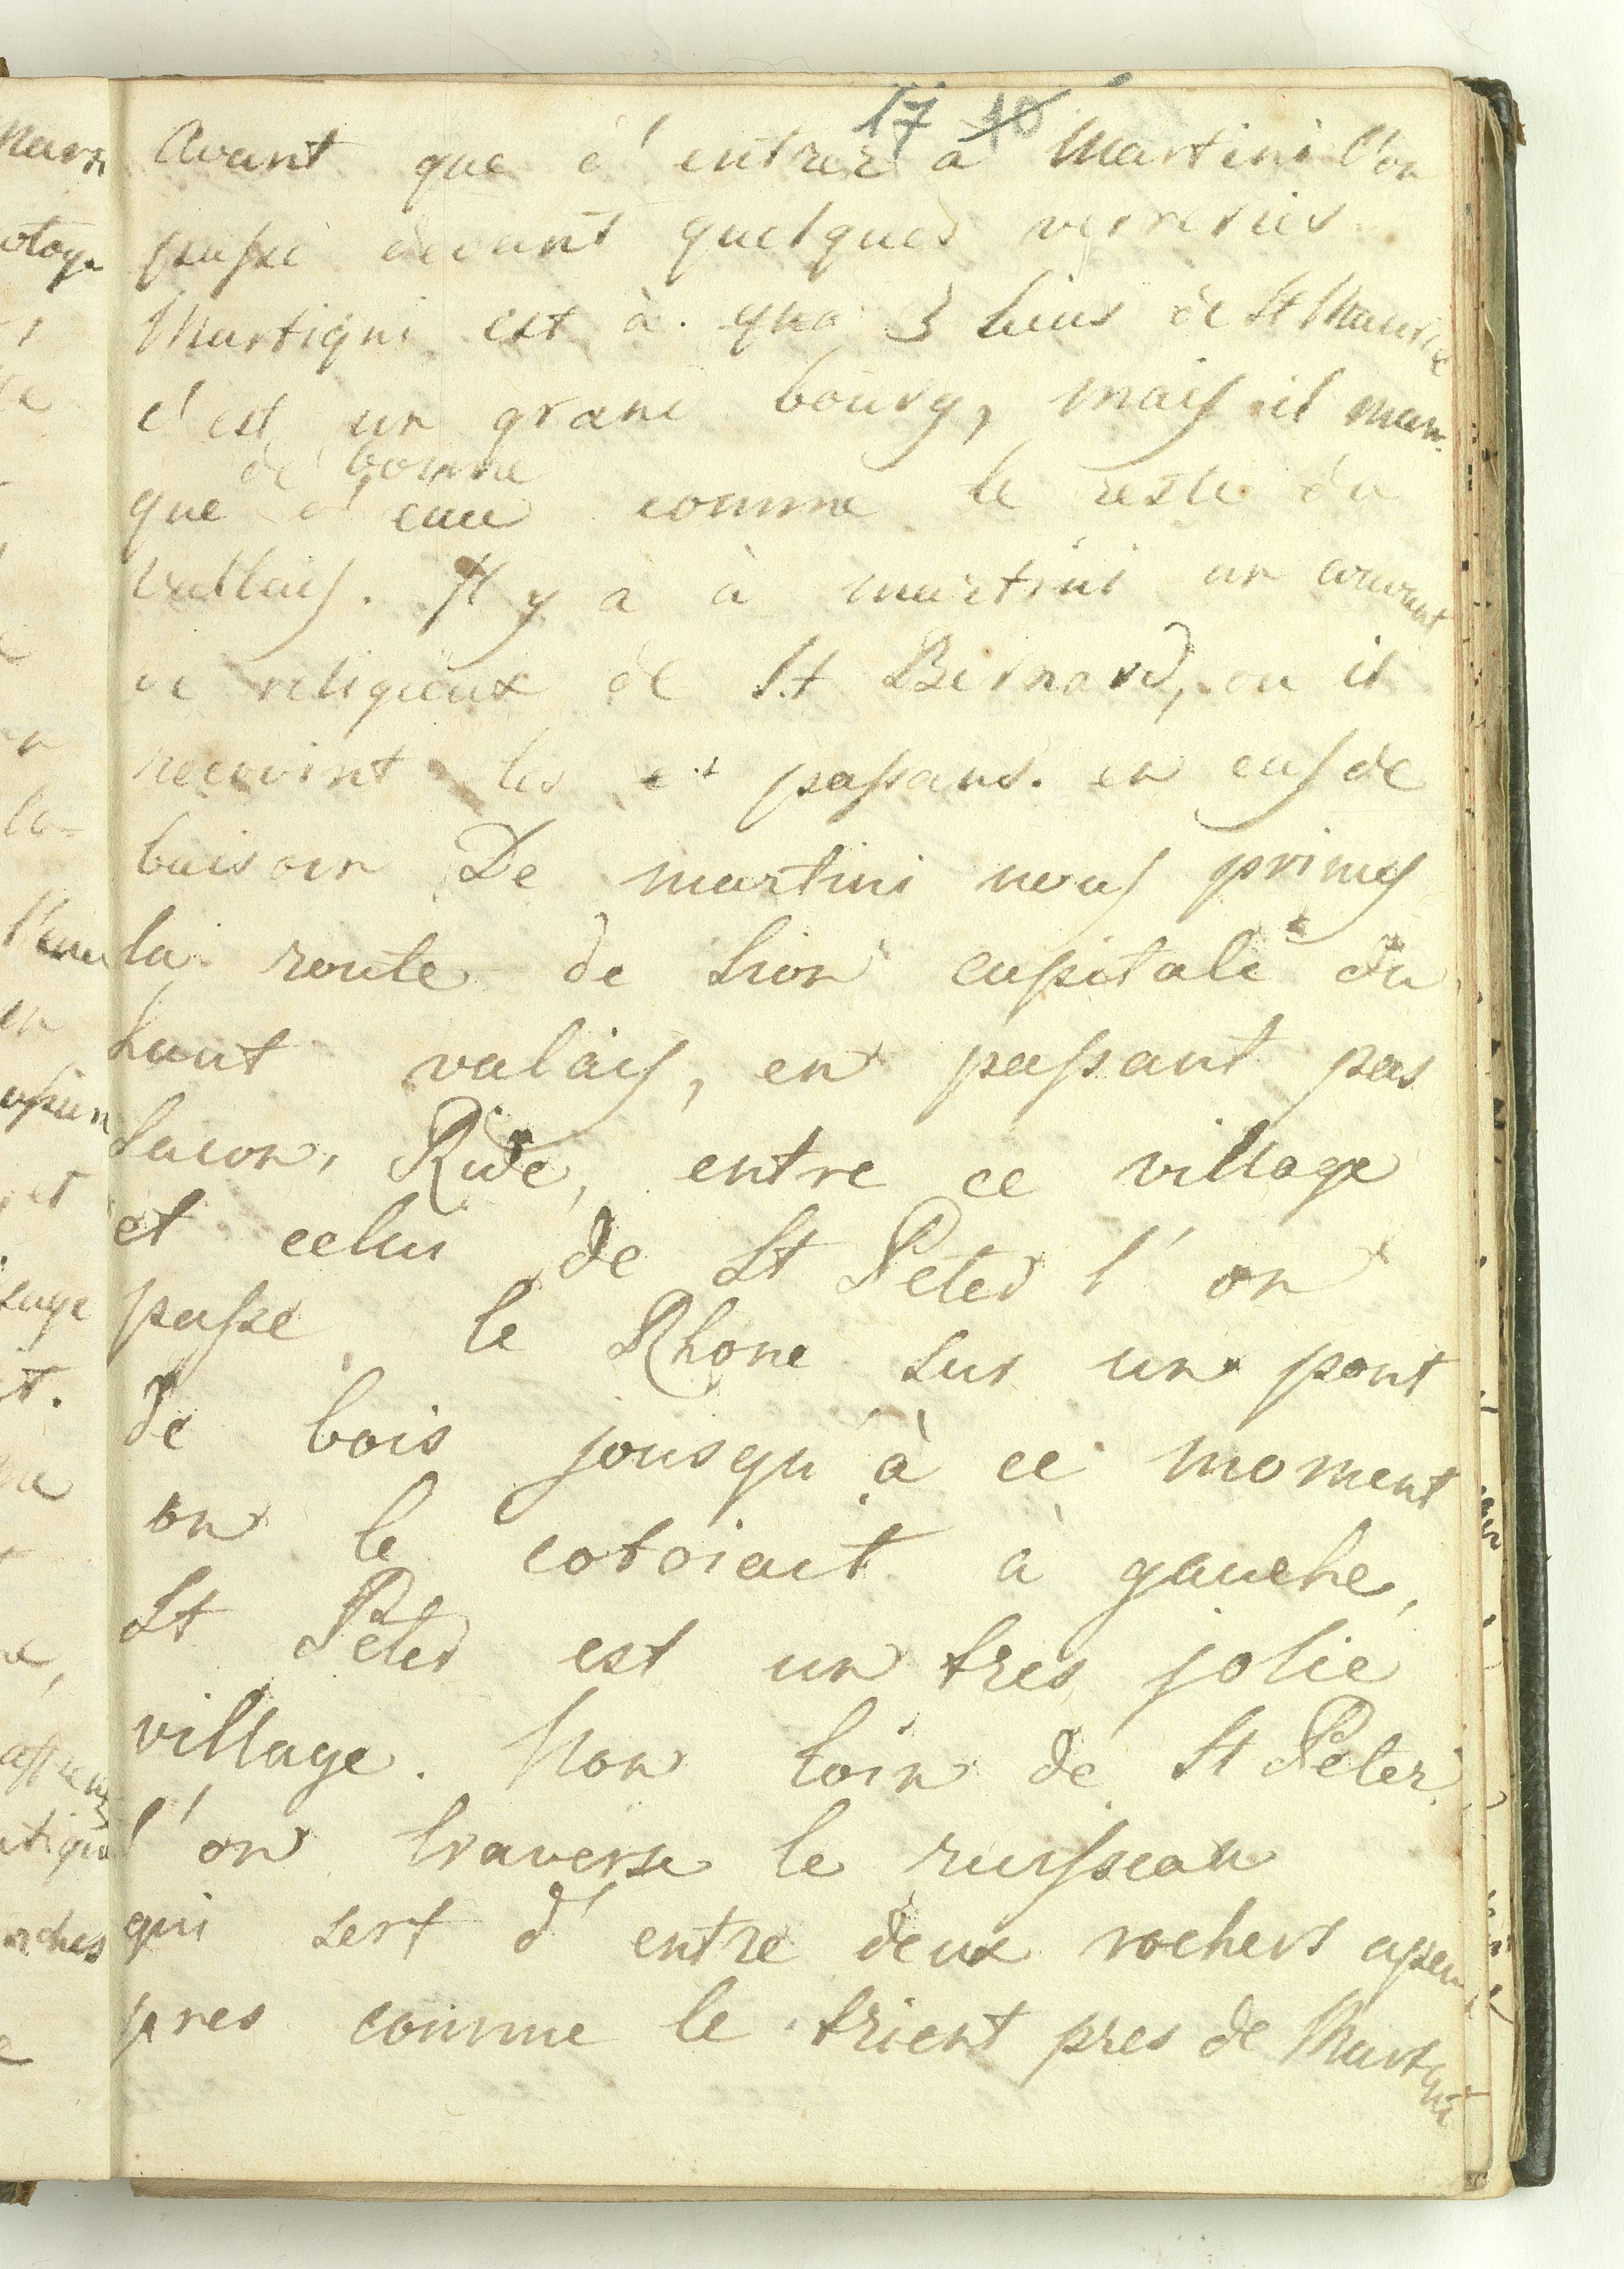 17 10
Avant que d'entrer à Martini l'on
passe devant quelques verreries
Martigni est à qua 3 lieus de St Maurice
c'est un grand bourg, mais il man-
de bonne
que d'eau comme le reste du
Vallais. Il y a à martini un couvant
de religieux de St Bernard, ou il
recoivint les et passans. en cas de
baisoin De martini nous primes
la route de Sion capitale du
haut valais, en passant pas
Sacon, Ride, entre ce village
et celui de St Peter l'on
passe le Rhone sur un pont
de bois jousqu'à ce moment
on le cotoiait à gauche,
St Peter est un tres jolie
village. Non loin de St Peter
l'on traverse le ruisseau
qui sert d'entre deux rochers apeu
pres comme le trient pres de Martigni